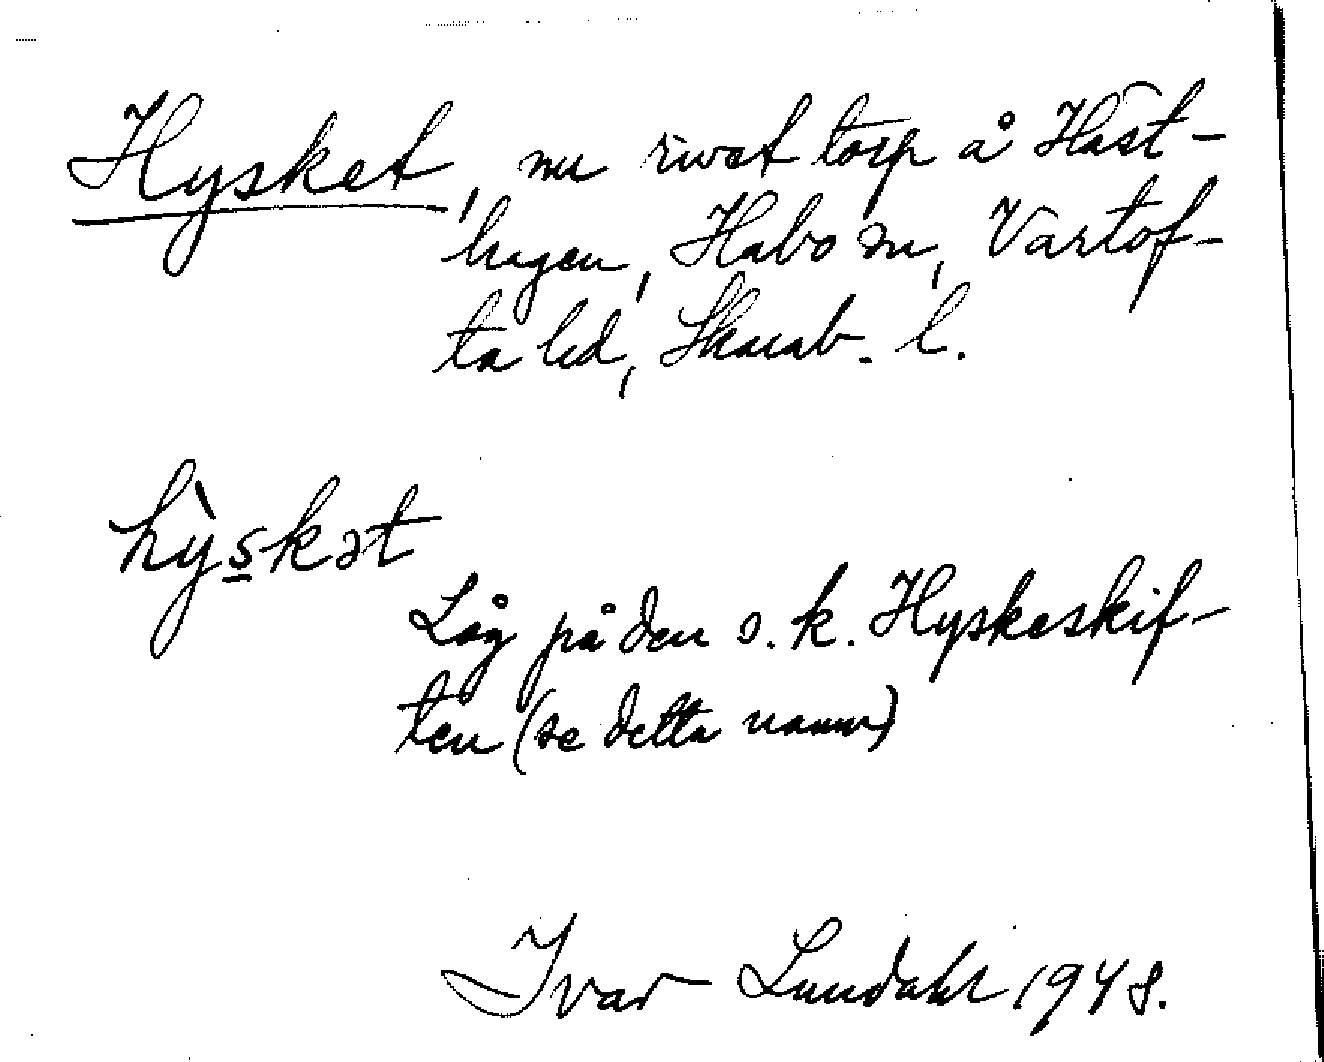 Hysket, nu rivet torp å Häst-
hagen, Habo sn, Vartof-
ta hd, Skarab. l.
hỳ̱skət
Låg på den s.k. Hyskeskif-
ten (se detta namn)
Ivar Lundahl 1948.